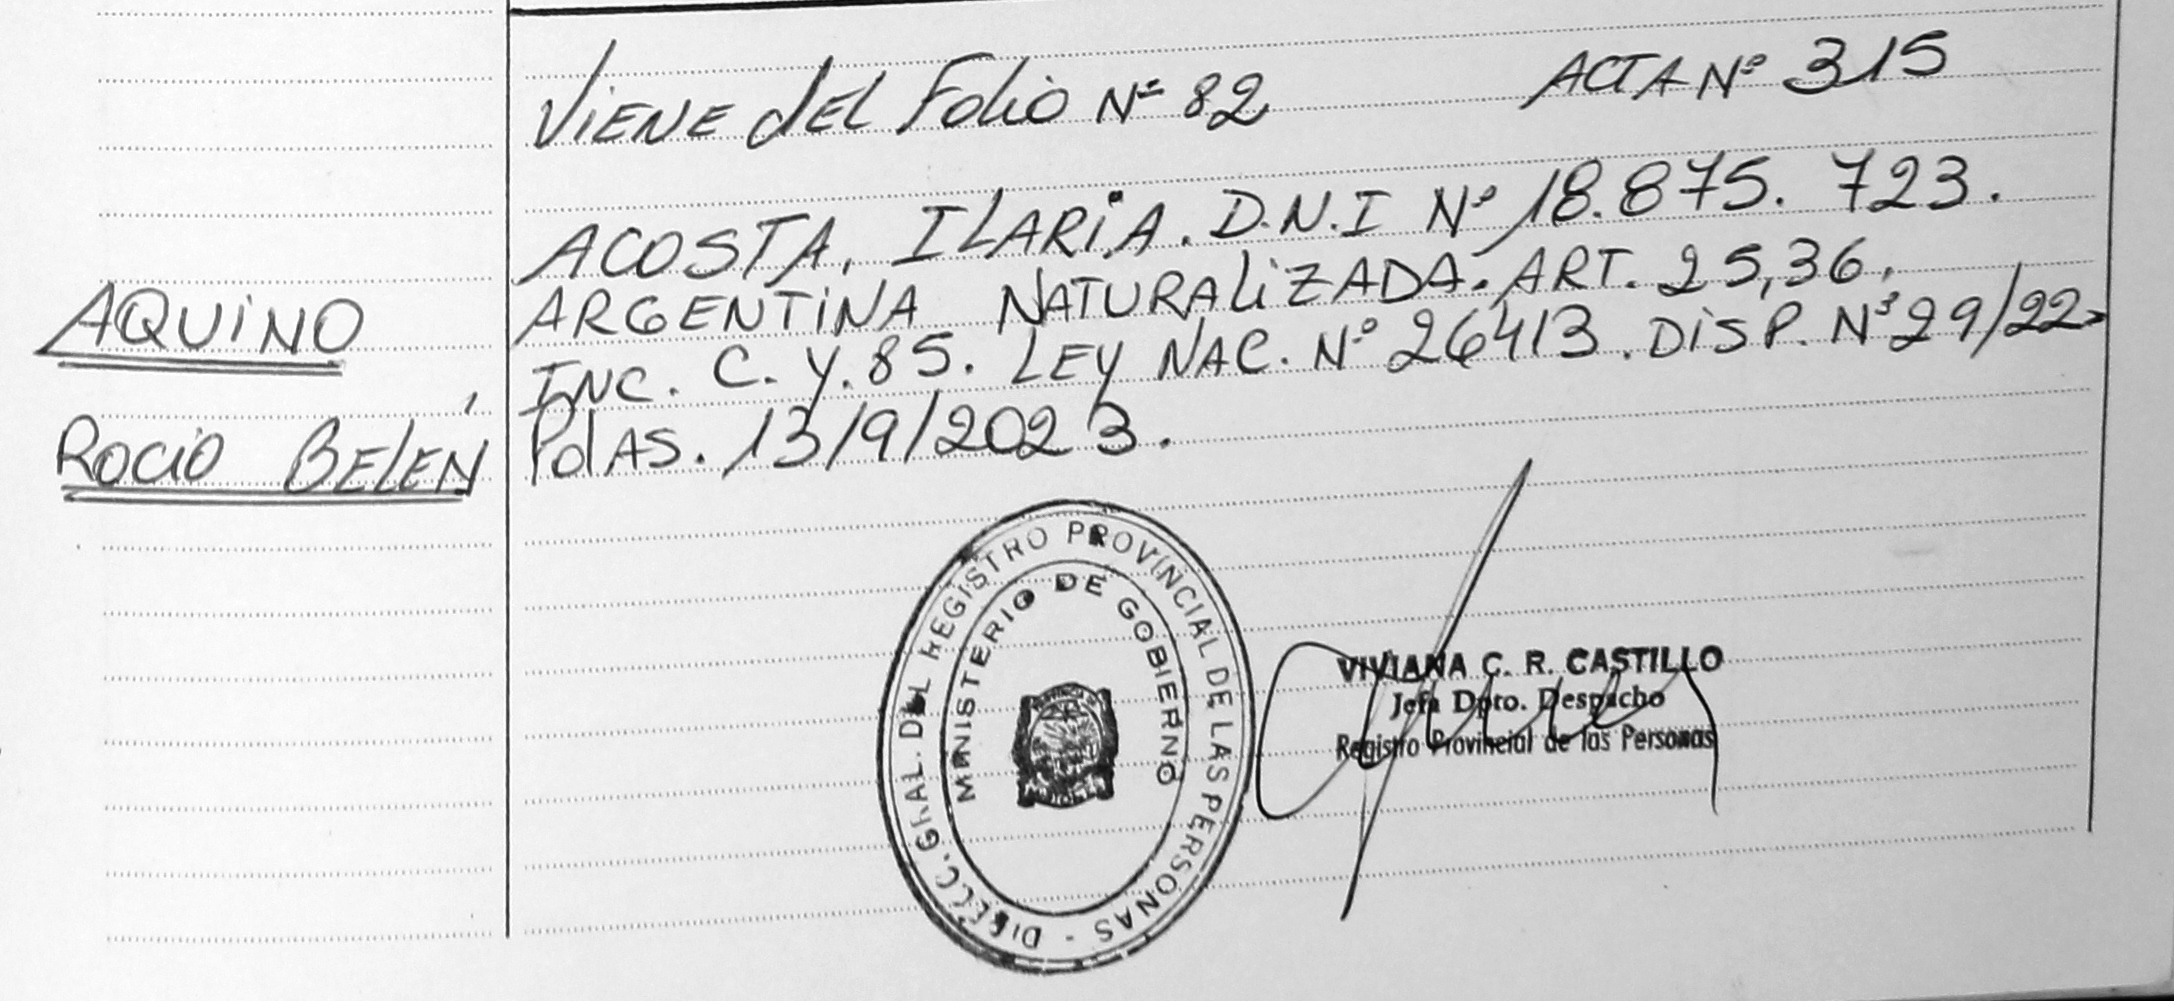 VIENE DEL FOLIO Nº 82 ACTA Nº 315
ACOSTA, ILARIA. D.N.I Nº 18.875.723.
ARGENTINA NATURALIZADA. ART. 25,36,
INC. C. Y. 85. LEY NAC. Nº 26413. DISP. Nº 29/22
PdAS. 13/9/2023.
AQUINO
ROCIO BELÉN
DIRECC. GRAL. DEL REGISTRO PROVINCIAL DE LAS PERSONAS -
MINISTERIO DE GOBIERNO
VIVIANA C. R. CASTILLO
Jefa Dpto. Despacho
Registro Provincial de las Personas